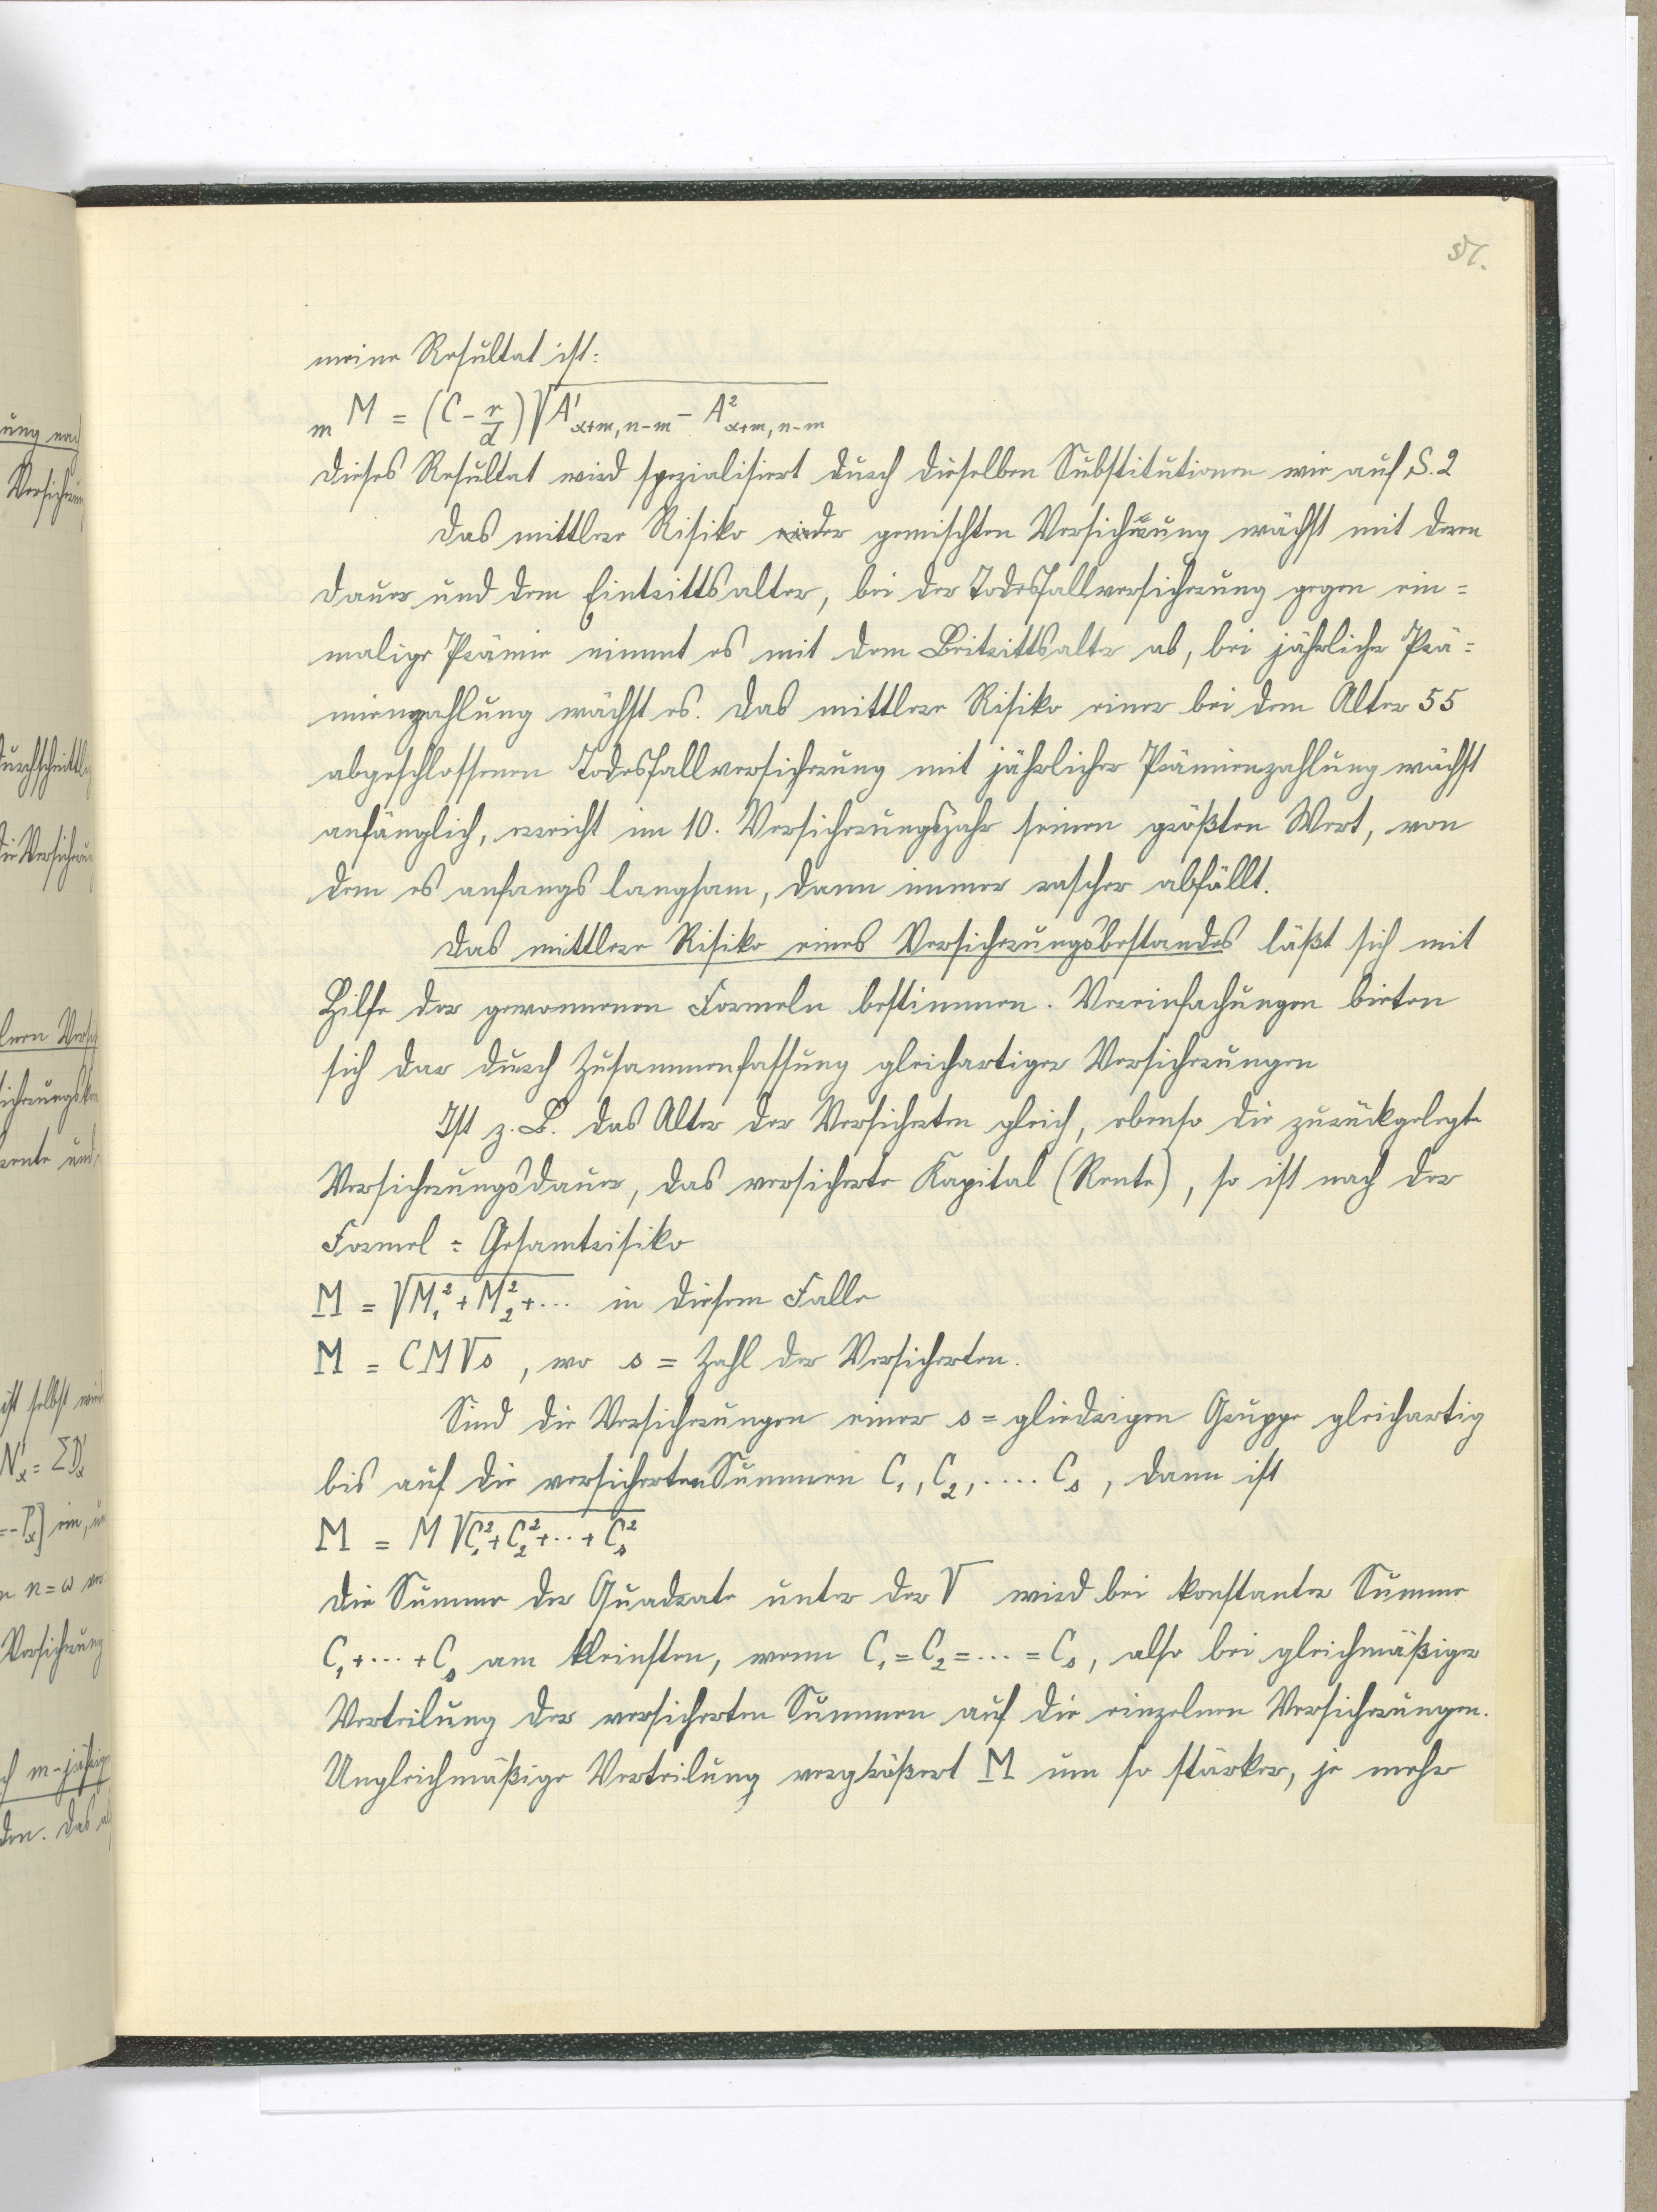 51.
meine Resultat ist:
ₘM = (C - r/d) √(A'ₓ₊ₘ, ₙ₋ₘ - A²ₓ₊ₘ, ₙ₋ₘ)
Dieses Resultat wird spezialisiert durch dieselben Substitutionen wie auf S. 2
Das mittlere Risiko der gemischten Versicherung wächst mit deren
Dauer und dem Eintrittsalter, bei der Todesfallversicherung gegen ein=
malige Prämie nimmt es mit dem Beitrittsalter ab, bei jährlicher Prä=
mienzahlung wächst es. Das mittlere Risiko einer bei dem Alter 55
abgeschlossenen Todesfallversicherung mit jährlicher Prämienzahlung wächst
anfänglich, erreicht im 10. Versicherungsjahr seinen größten Wert, von
dem es anfangs langsam, dann immer rascher abfällt.
Das mittlere Risiko eines Versicherungsbestandes läßt sich mit
Hilfe der gewonnenen Formeln bestimmen. Vereinfachungen bieten
sich dar durch Zusammenfassung gleichartiger Versicherungen
Ist z. B. das Alter der Versicherten gleich, ebenso die zurückgelegte
Versicherungsdauer, das versicherte Kapital (Rente), so ist nach der
Formel = Gesamtrisiko
M = √(M₁² + M₂² + ...) in diesem Falle
M = CM√s, wo s = Zahl der Versicherten.
Sind die Versicherungen einer s=gliedrigen Gruppe gleichartig
bis auf die versicherten Summen C₁, C₂, .... Cₛ, dann ist
M = M √(C₁² + C₂² + ... + Cₛ²)
Die Summe der Quadrate unter der √ wird bei konstanter Summe
C₁ + ... + Cₛ am kleinsten, wenn C₁ = C₂ = ... = Cₛ, also bei gleichmäßiger
Verteilung der versicherten Summen auf die einzelnen Versicherungen.
Ungleichmäßige Verteilung vergrößert M um so stärker, je mehr